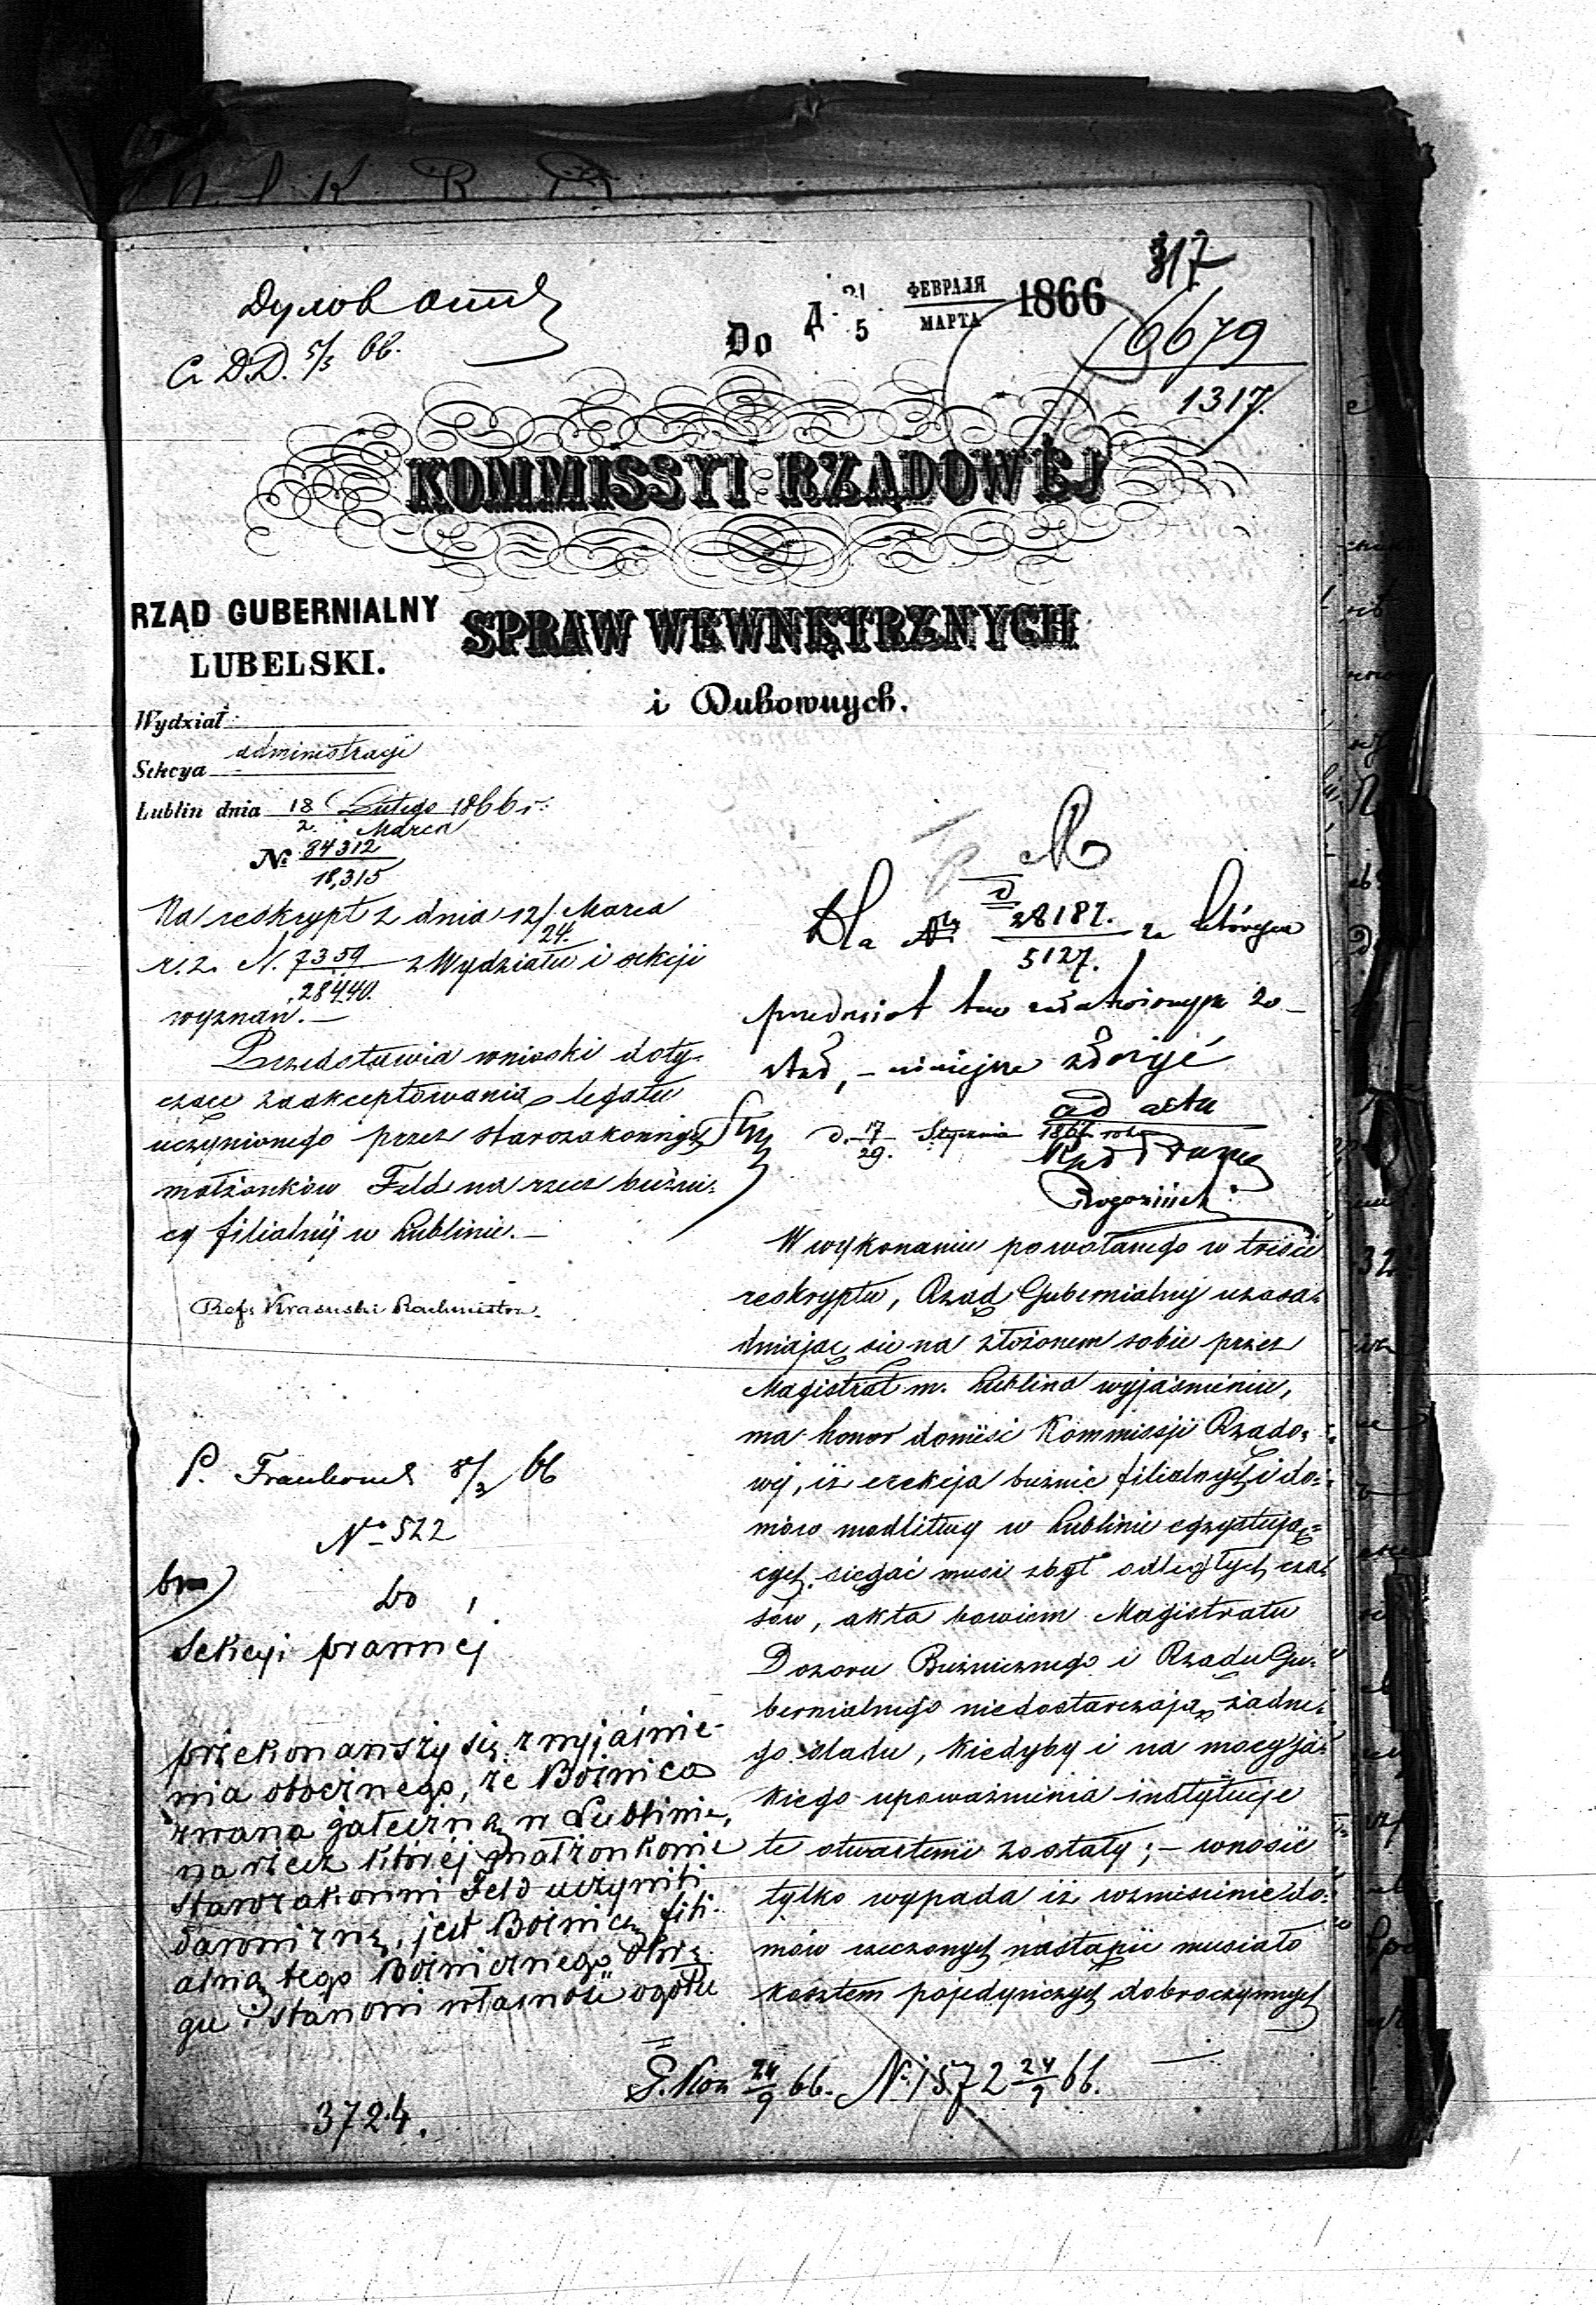 317
Д. 21/5 ФЕВРАЛЯ/МАРТА 1866
6679
1317.
С. D.D. 5/3 66.
Do
KOMMISSYI RZĄDOWÉJ
SPRAW WEWNĘTRZNYCH
i Duchownych.
RZĄD GUBERNIALNY
LUBELSKI.
Wydział
Sekcya administracji
Lublin dnia 18 Lutego 1866 r.
2. Marca
№ 84312
18,315
Na reskrypt z dnia 12/24. Marca
r.z. N. 7359/28440. z Wydziału i sekcji
wyznań.—
Przedstawia wnioski doty-
czące zaakceptowania legatu
uczynionego przez starozakonnych
małżonków Feld na rzecz bużni-
cy filialnéj w Lublinie.—
Ref. Krasuski Rachmistrz.
P. 8/3 66
No 522
Do
Sekcyi prawnej
przekonawszy się z wyjaśnie-
nia obocznego, że Bożnica
zwana jateczną w Lublinie,
na rzecz której małżonkowie
Starozakonni Feld uczynili
darowiznę, jest Bożnicą fili-
alną tego Bożnicznego Okrę-
gu i stanowi własność ogółu
3724.
Dla No 28187. za którym
5127.
przedmiot ten załatwionym zo-
stał, – niniejsze złożyć
ad acta
d. 17/29. Stycznia 1867 roku
W wykonaniu powołanego w treści
reskryptu, Rząd Gubernialny uzasa-
dniając się na złożonem sobie przez
Magistrat m. Lublina wyjaśnieniu,
ma honor donieść Kommissji Rządo-
wéj, iż erekcja bużnic filialnych i do-
mów modlitwy w Lublinie egzystują-
cych, sięgać musi zbyt odległych cza-
sów, akta bowiem Magistratu
Dozoru Bużnicznego i Rządu Gu-
bernialnego niedostarczają żadne-
go śladu, kiedyby i na mocy ja-
kiego upoważnienia instytucje
te otwartemi zostały; – wnosić
tylko wypada iż wzniesienie do-
mów rzeczonych nastąpić musiało
kosztem pojedynczych dobroczynnych
24/9 66. No 1572 24/9 66.